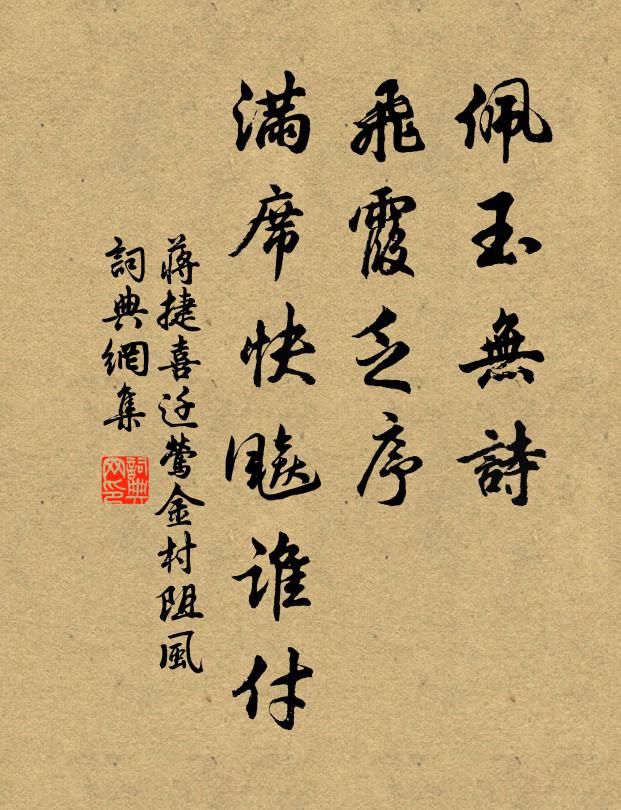 佩玉無詩
飛霞乏序
滿席快飈誰付
蔣捷喜迁鶯金村阻風
詞典網集
詞典网印